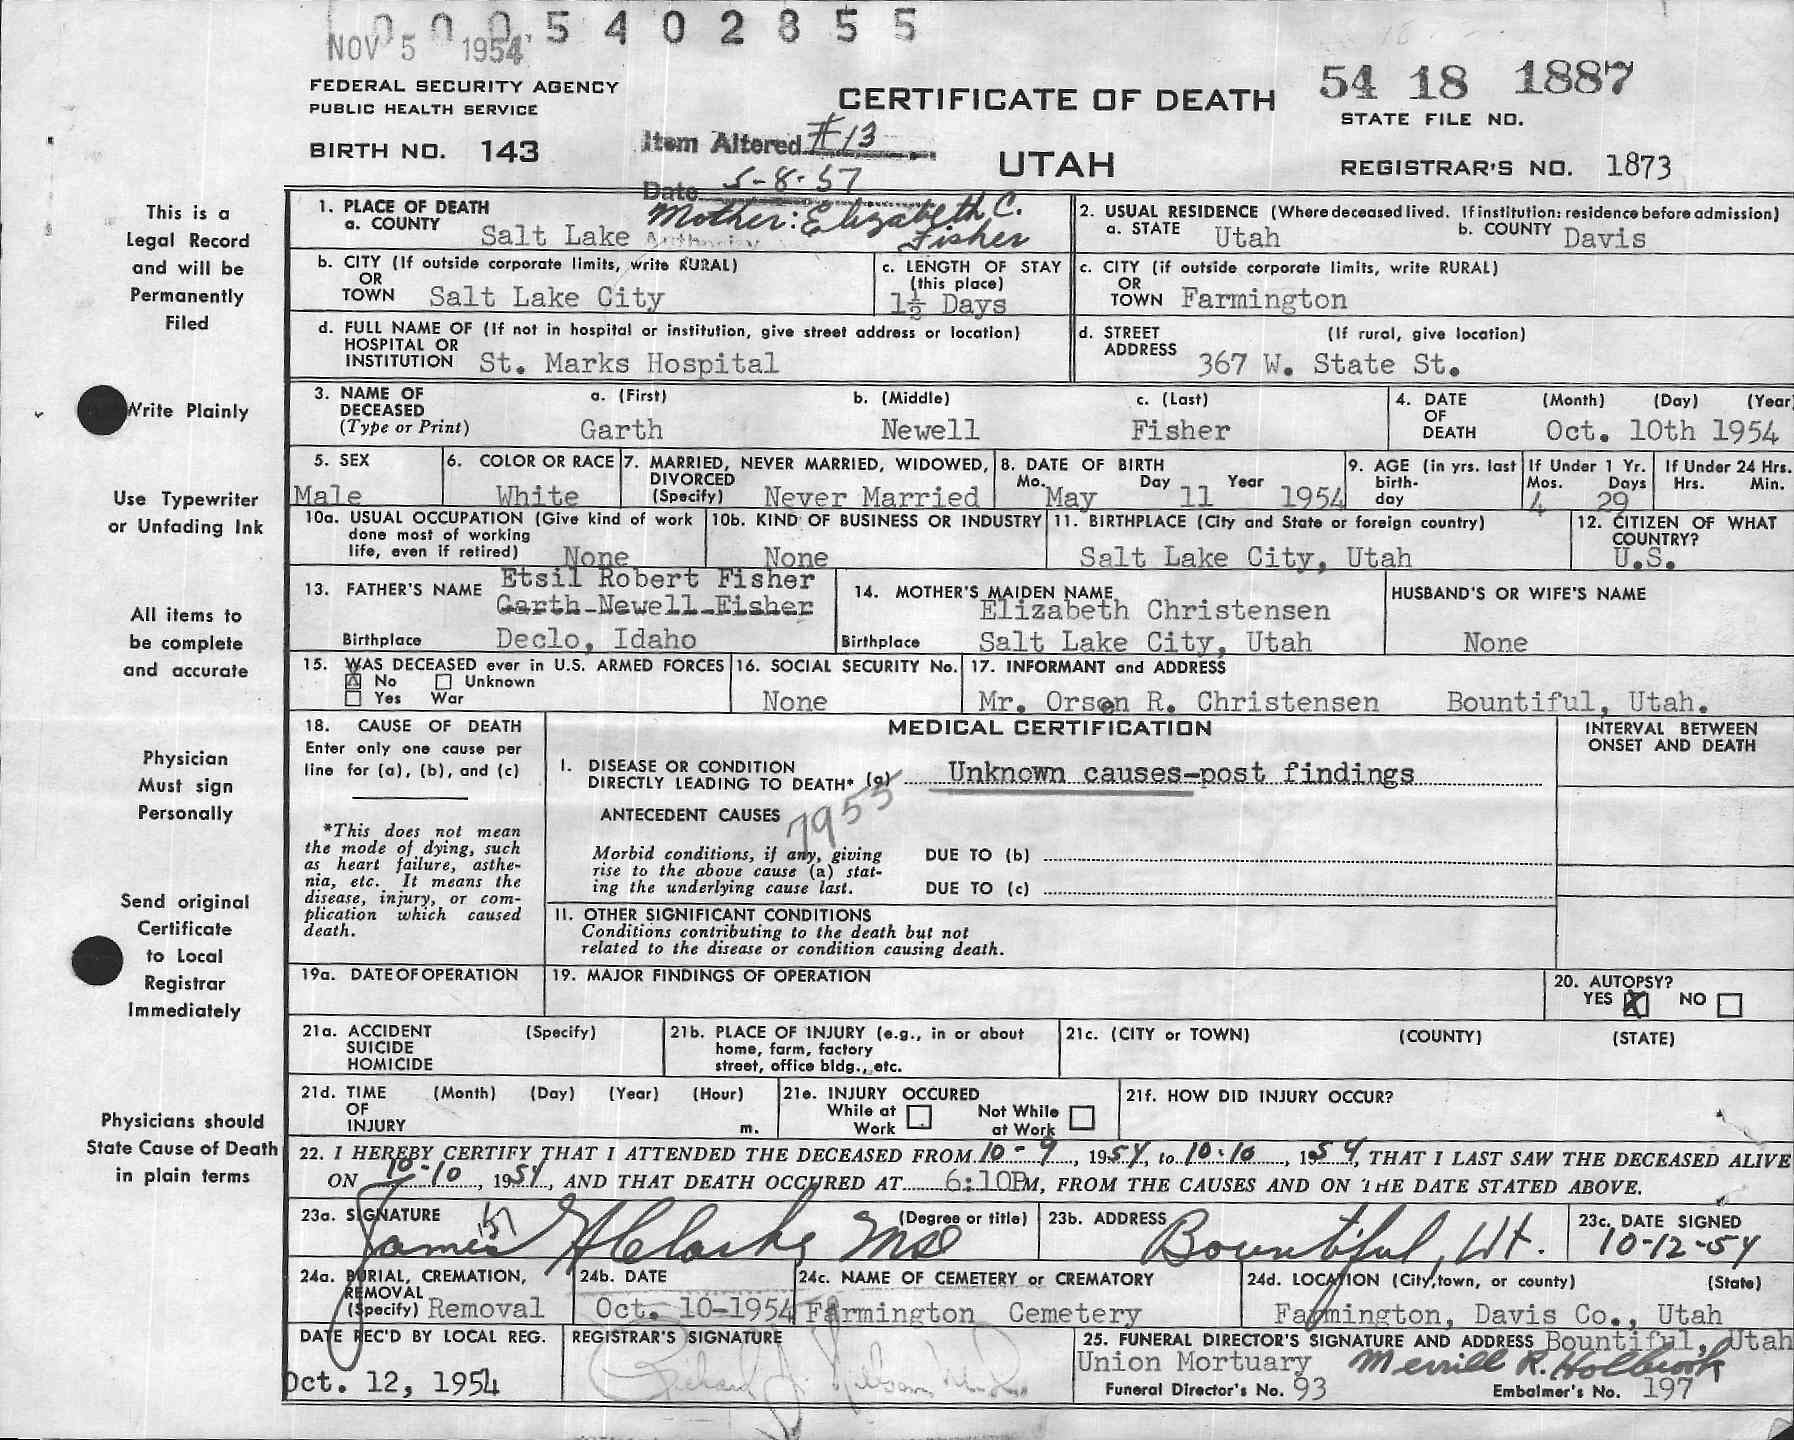 0005402855
NOV 5 1954
FEDERAL SECURITY AGENCY
PUBLIC HEALTH SERVICE
BIRTH NO. 143
CERTIFICATE OF DEATH
UTAH
54 18 1887
STATE FILE NO.
REGISTRAR'S NO. 1873
Item Altered #13
Date 5-8-57
Mother: Elizabeth C. Fisher
This is a
Legal Record
and will be
Permanently
Filed
Write Plainly
Use Typewriter
or Unfading Ink
All items to
be complete
and accurate
Physician
Must sign
Personally
Send original
Certificate
to Local
Registrar
Immediately
Physicians should
State Cause of Death
in plain terms
1. PLACE OF DEATH
a. COUNTY Salt Lake
2. USUAL RESIDENCE (Where deceased lived. If institution: residence before admission)
a. STATE Utah b. COUNTY Davis
b. CITY (If outside corporate limits, write RURAL)
OR
TOWN Salt Lake City
c. LENGTH OF STAY
(this place)
1½ Days
c. CITY (if outside corporate limits, write RURAL)
OR
TOWN Farmington
d. FULL NAME OF (If not in hospital or institution, give street address or location)
HOSPITAL OR
INSTITUTION St. Marks Hospital
d. STREET (If rural, give location)
ADDRESS 367 W. State St.
3. NAME OF DECEASED (Type or Print)
a. (First) b. (Middle) c. (Last)
Garth Newell Fisher
4. DATE OF DEATH (Month) (Day) (Year)
Oct. 10th 1954
5. SEX
Male
6. COLOR OR RACE
White
7. MARRIED, NEVER MARRIED, WIDOWED,
DIVORCED
(Specify) Never Married
8. DATE OF BIRTH
Mo. Day Year
May 11 1954
9. AGE (in yrs. last
birth-
day
If Under 1 Yr.
Mos. Days
4 29
If Under 24 Hrs.
Hrs. Min.
10a. USUAL OCCUPATION (Give kind of work
done most of working
life, even if retired) None
10b. KIND OF BUSINESS OR INDUSTRY
None
11. BIRTHPLACE (City and State or foreign country)
Salt Lake City, Utah
12. CITIZEN OF WHAT
COUNTRY?
U.S.
13. FATHER'S NAME Etsil Robert Fisher
Garth Newell Fisher
Birthplace Declo, Idaho
14. MOTHER'S MAIDEN NAME
Elizabeth Christensen
Birthplace Salt Lake City, Utah
HUSBAND'S OR WIFE'S NAME
None
15. WAS DECEASED ever in U.S. ARMED FORCES
X No Unknown
Yes War
16. SOCIAL SECURITY No.
None
17. INFORMANT and ADDRESS
Mr. Orson R. Christensen Bountiful, Utah.
18. CAUSE OF DEATH
Enter only one cause per
line for (a), (b), and (c)
*This does not mean
the mode of dying, such
as heart failure, asthe-
nia, etc. It means the
disease, injury, or com-
plication which caused
death.
MEDICAL CERTIFICATION
INTERVAL BETWEEN
ONSET AND DEATH
I. DISEASE OR CONDITION
DIRECTLY LEADING TO DEATH* (a) Unknown causes-post findings
7955
ANTECEDENT CAUSES
Morbid conditions, if any, giving
rise to the above cause (a) stat-
ing the underlying cause last.
DUE TO (b)
DUE TO (c)
II. OTHER SIGNIFICANT CONDITIONS
Conditions contributing to the death but not
related to the disease or condition causing death.
19a. DATE OF OPERATION
19. MAJOR FINDINGS OF OPERATION
20. AUTOPSY?
YES X NO
21a. ACCIDENT (Specify)
SUICIDE
HOMICIDE
21b. PLACE OF INJURY (e.g., in or about
home, farm, factory
street, office bldg., etc.
21c. (CITY or TOWN) (COUNTY) (STATE)
21d. TIME (Month) (Day) (Year) (Hour)
OF
INJURY m.
21e. INJURY OCCURED
While at Work Not While at Work
21f. HOW DID INJURY OCCUR?
22. I HEREBY CERTIFY THAT I ATTENDED THE DECEASED FROM 10-9, 1954, to 10-10, 1954, THAT I LAST SAW THE DECEASED ALIVE
ON 10-10, 1954, AND THAT DEATH OCCURED AT 6:10PM, FROM THE CAUSES AND ON THE DATE STATED ABOVE.
23a. SIGNATURE (Degree or title)
James H Clarke MD
23b. ADDRESS
Bountiful, Ut.
23c. DATE SIGNED
10-12-54
24a. BURIAL, CREMATION,
REMOVAL
(Specify) Removal
24b. DATE
Oct. 10-1954
24c. NAME OF CEMETERY or CREMATORY
Farmington Cemetery
24d. LOCATION (City, town, or county) (State)
Farmington, Davis Co., Utah
DATE REC'D BY LOCAL REG.
Oct. 12, 1954
REGISTRAR'S SIGNATURE
25. FUNERAL DIRECTOR'S SIGNATURE AND ADDRESS Bountiful, Utah
Union Mortuary Merrill R. Holbrook
Funeral Director's No. 93 Embalmer's No. 197